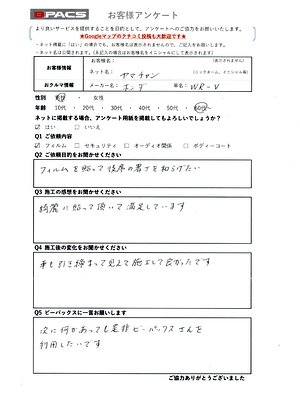 BPACS お客様アンケート
より良いサービスを提供することを目的として、アンケートへのご協力をお願いいたします。
★Googleマップのクチコミ投稿も大歓迎です★
・ネット掲載に「はい」の場合でも、お名前は表示されませんので、ご記入をお願いします。
・ネット名は公開されます。（未記入の場合はお客様名をイニシャルにして表示します）
お客様情報
お名前：
（表示されません）
ネット名： ヤマチャン
（ニックネーム、イニシャル等）
おクルマ情報
メーカー名： ホンダ 車名： WR-V
性別 男性 ・ 女性
年齢 10代 ・ 20代 ・ 30代 ・ 40代 ・ 50代 ・ 60代～
ネットに掲載する場合、アンケート用紙を掲載してもよろしいでしょうか？
☑ はい □ いいえ
Q1 ご依頼内容
☑ フィルム □ セキュリティ □ オーディオ関係 □ ボディーコート
Q2 ご依頼目的をお聞かせください
フィルムを貼って後席の暑さを和らげたい
Q3 施工の感想をお聞かせください
綺麗に貼って頂いて満足しています
Q4 施工後の変化をお聞かせください
車も引き締まって見えて施工して良かったです
Q5 ビーパックスに一言お願いします
次に何かあっても是非ビーパックスさんを
利用したいです
ご協力ありがとうございました